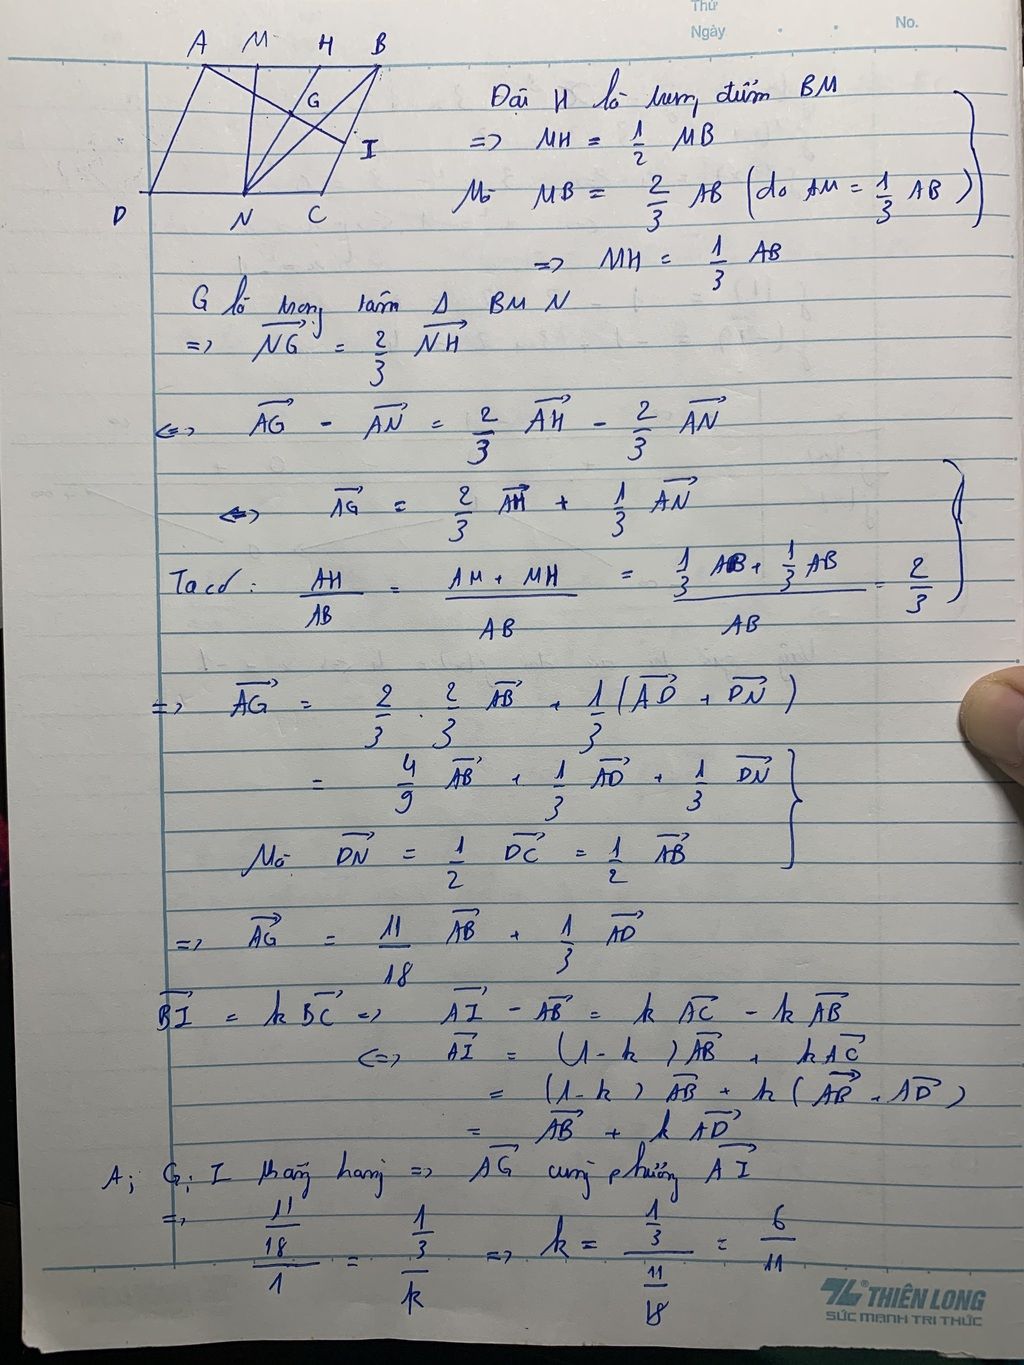 Thứ
Ngày . . No.
A M H B
G
I
D N C
Đặt H là trung điểm BM
=> MH = 1/2 MB
Mà MB = 2/3 AB (do AM = 1/3 AB)
=> MH = 1/3 AB
G là trọng tâm Δ BMN
=> \overrightarrow{NG} = 2/3 \overrightarrow{NH}
<=> \overrightarrow{AG} - \overrightarrow{AN} = 2/3 \overrightarrow{AH} - 2/3 \overrightarrow{AN}
<=> \overrightarrow{AG} = 2/3 \overrightarrow{AH} + 1/3 \overrightarrow{AN}
Ta có: AH/AB = (AM + MH)/AB = (1/3 AB + 1/3 AB)/AB = 2/3
=> \overrightarrow{AG} = 2/3 . 2/3 \overrightarrow{AB} + 1/3 (\overrightarrow{AD} + \overrightarrow{DN})
= 4/9 \overrightarrow{AB} + 1/3 \overrightarrow{AD} + 1/3 \overrightarrow{DN}
Mà \overrightarrow{DN} = 1/2 \overrightarrow{DC} = 1/2 \overrightarrow{AB}
=> \overrightarrow{AG} = 11/18 \overrightarrow{AB} + 1/3 \overrightarrow{AD}
\overrightarrow{BI} = k \overrightarrow{BC} => \overrightarrow{AI} - \overrightarrow{AB} = k \overrightarrow{AC} - k \overrightarrow{AB}
<=> \overrightarrow{AI} = (1-k) \overrightarrow{AB} + k \overrightarrow{AC}
= (1-k) \overrightarrow{AB} + k (\overrightarrow{AB} + \overrightarrow{AD})
= \overrightarrow{AB} + k \overrightarrow{AD}
A; G; I thẳng hàng => \overrightarrow{AG} cùng phương \overrightarrow{AI}
=> (11/18)/1 = (1/3)/k => k = (1/3)/(11/18) = 6/11
TL THIÊN LONG
SỨC MẠNH TRI THỨC